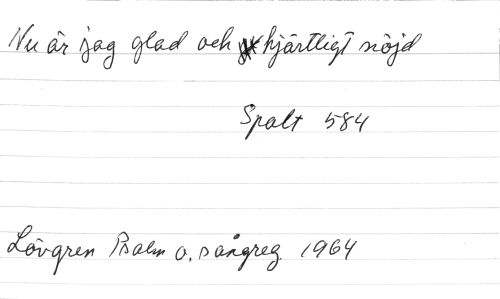 Nu är jag glad och hjärtligt nöjd
Spalt 584
Lövgren Psalm o. sångreg. 1964